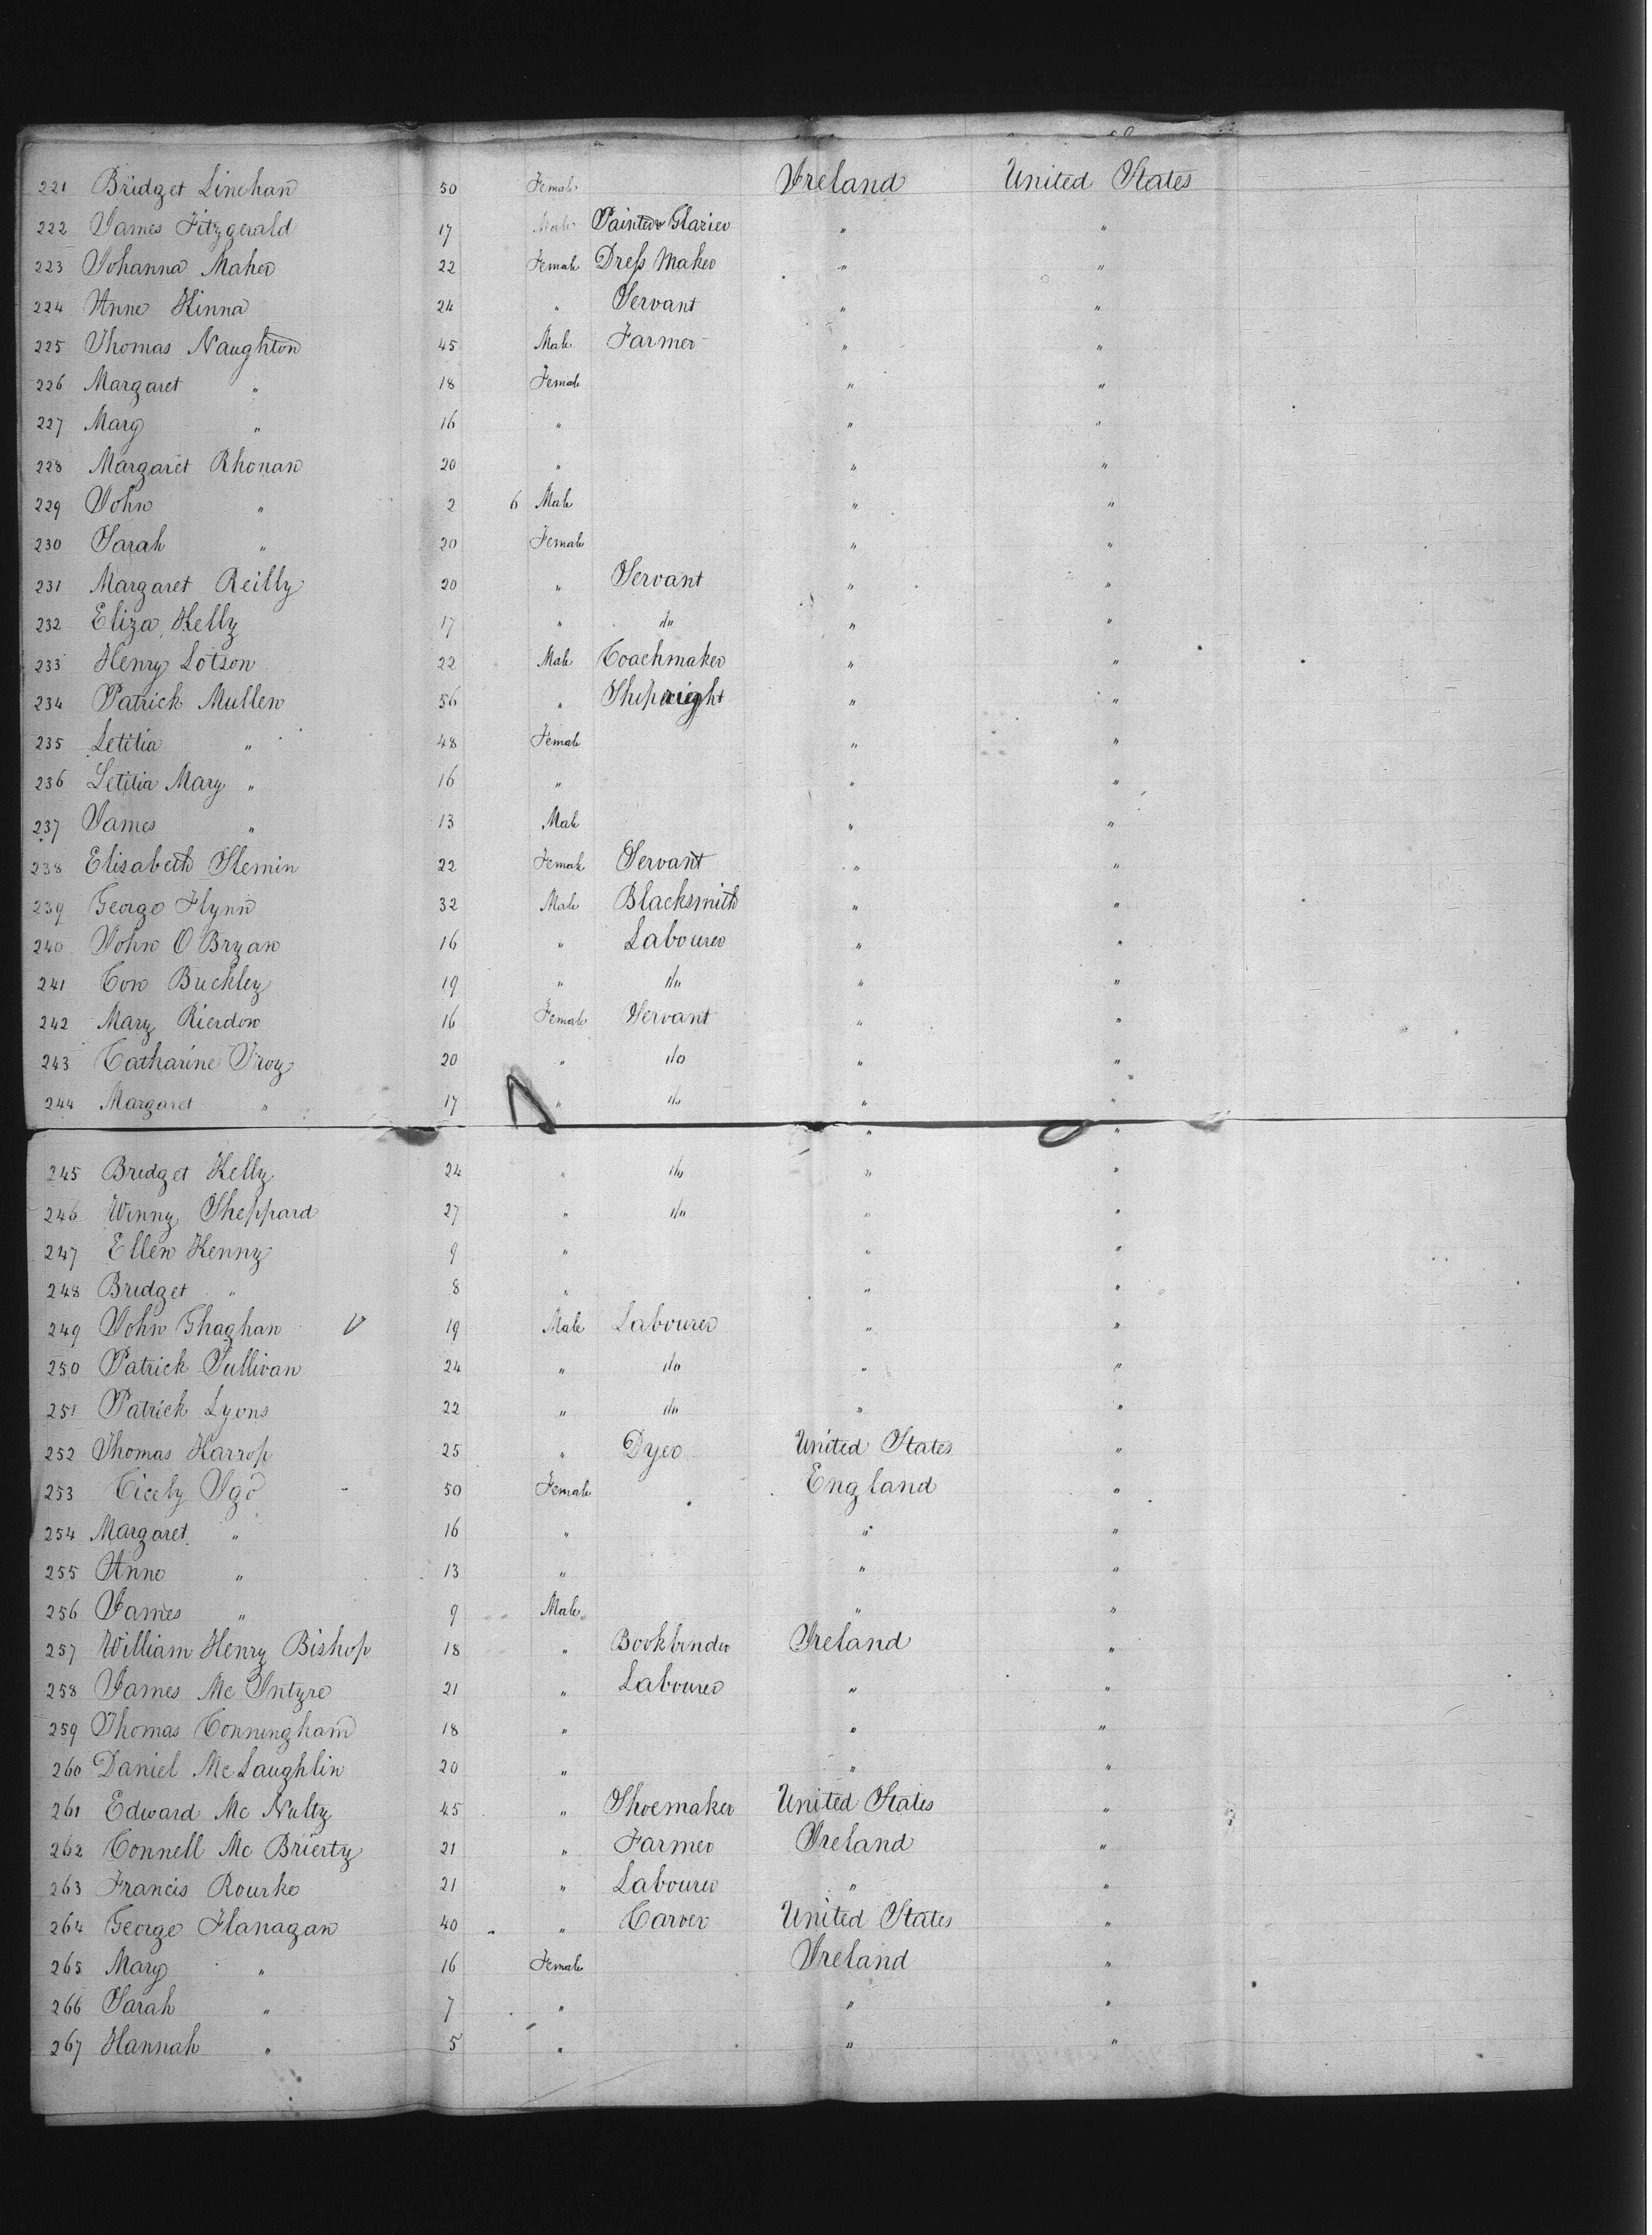 221 Bridget Linehan 50 Female Ireland United States
222 James Fitzgerald 17 Male Painter & Glazier " "
223 Johanna Maher 22 Female Dress Maker " "
224 Anne Kinna 24 " Servant " "
225 Thomas Naughton 45 Male Farmer " "
226 Margaret " 18 Female " "
227 Mary " 16 " " "
228 Margaret Rhonan 20 " " "
229 John " 2 6 Male " "
230 Sarah " 20 Female " "
231 Margaret Reilly 20 " Servant " "
232 Eliza Kelly 17 " do " "
233 Henry Lotson 22 Male Coachmaker " "
234 Patrick Mullen 56 " Shipwright " "
235 Letitia " 48 Female " "
236 Letitia Mary " 16 " " "
237 James " 13 Male " "
238 Elisabeth Slemin 22 Female Servant " "
239 George Flynn 32 Male Blacksmith " "
240 John O Bryan 16 " Labourer " "
241 Con Buckley 19 " do " "
242 Mary Rierdon 16 Female Servant " "
243 Catharine Troy 20 " do " "
244 Margaret " 17 " do " "
" "
245 Bridget Kelly 24 " do " "
246 Winny Sheppard 27 " do " "
247 Ellen Kenny 9 " " "
248 Bridget " 8 " " "
249 John Ghaghan 19 Male Labourer " "
250 Patrick Sullivan 24 " do " "
251 Patrick Lyons 22 " do " "
252 Thomas Harrop 25 " Dyer United States "
253 Cicely Igo 50 Female England "
254 Margaret " 16 " " "
255 Anne " 13 " " "
256 James " 9 Male " "
257 William Henry Bishop 18 " Bookbinder Ireland "
258 James Mc Intyre 21 " Labourer " "
259 Thomas Conningham 18 " " "
260 Daniel Mc Laughlin 20 " " "
261 Edward Mc Nulty 45 " Shoemaker United States "
262 Connell Mc Brierty 21 " Farmer Ireland "
263 Francis Rourke 21 " Labourer " "
264 George Flanagan 40 " Carver United States "
265 Mary " 16 Female Ireland "
266 Sarah " 7 " " "
267 Hannah " 5 " " "